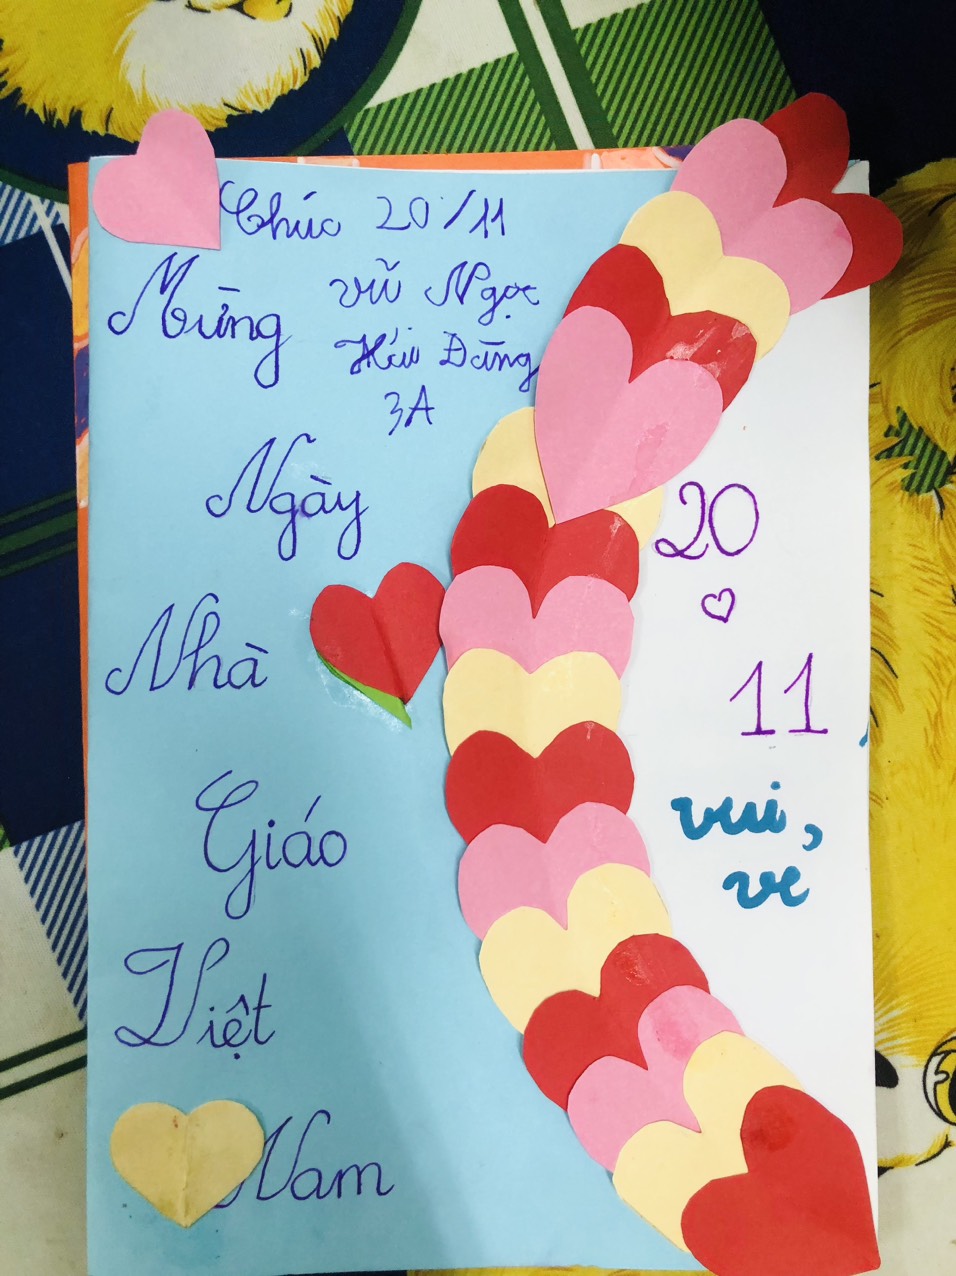 Chúc 20/11
Mừng
Vũ Ngọc
Hải Đăng
3A
Ngày
Nhà
Giáo
Việt
Nam
20
11
vui,
vẻ